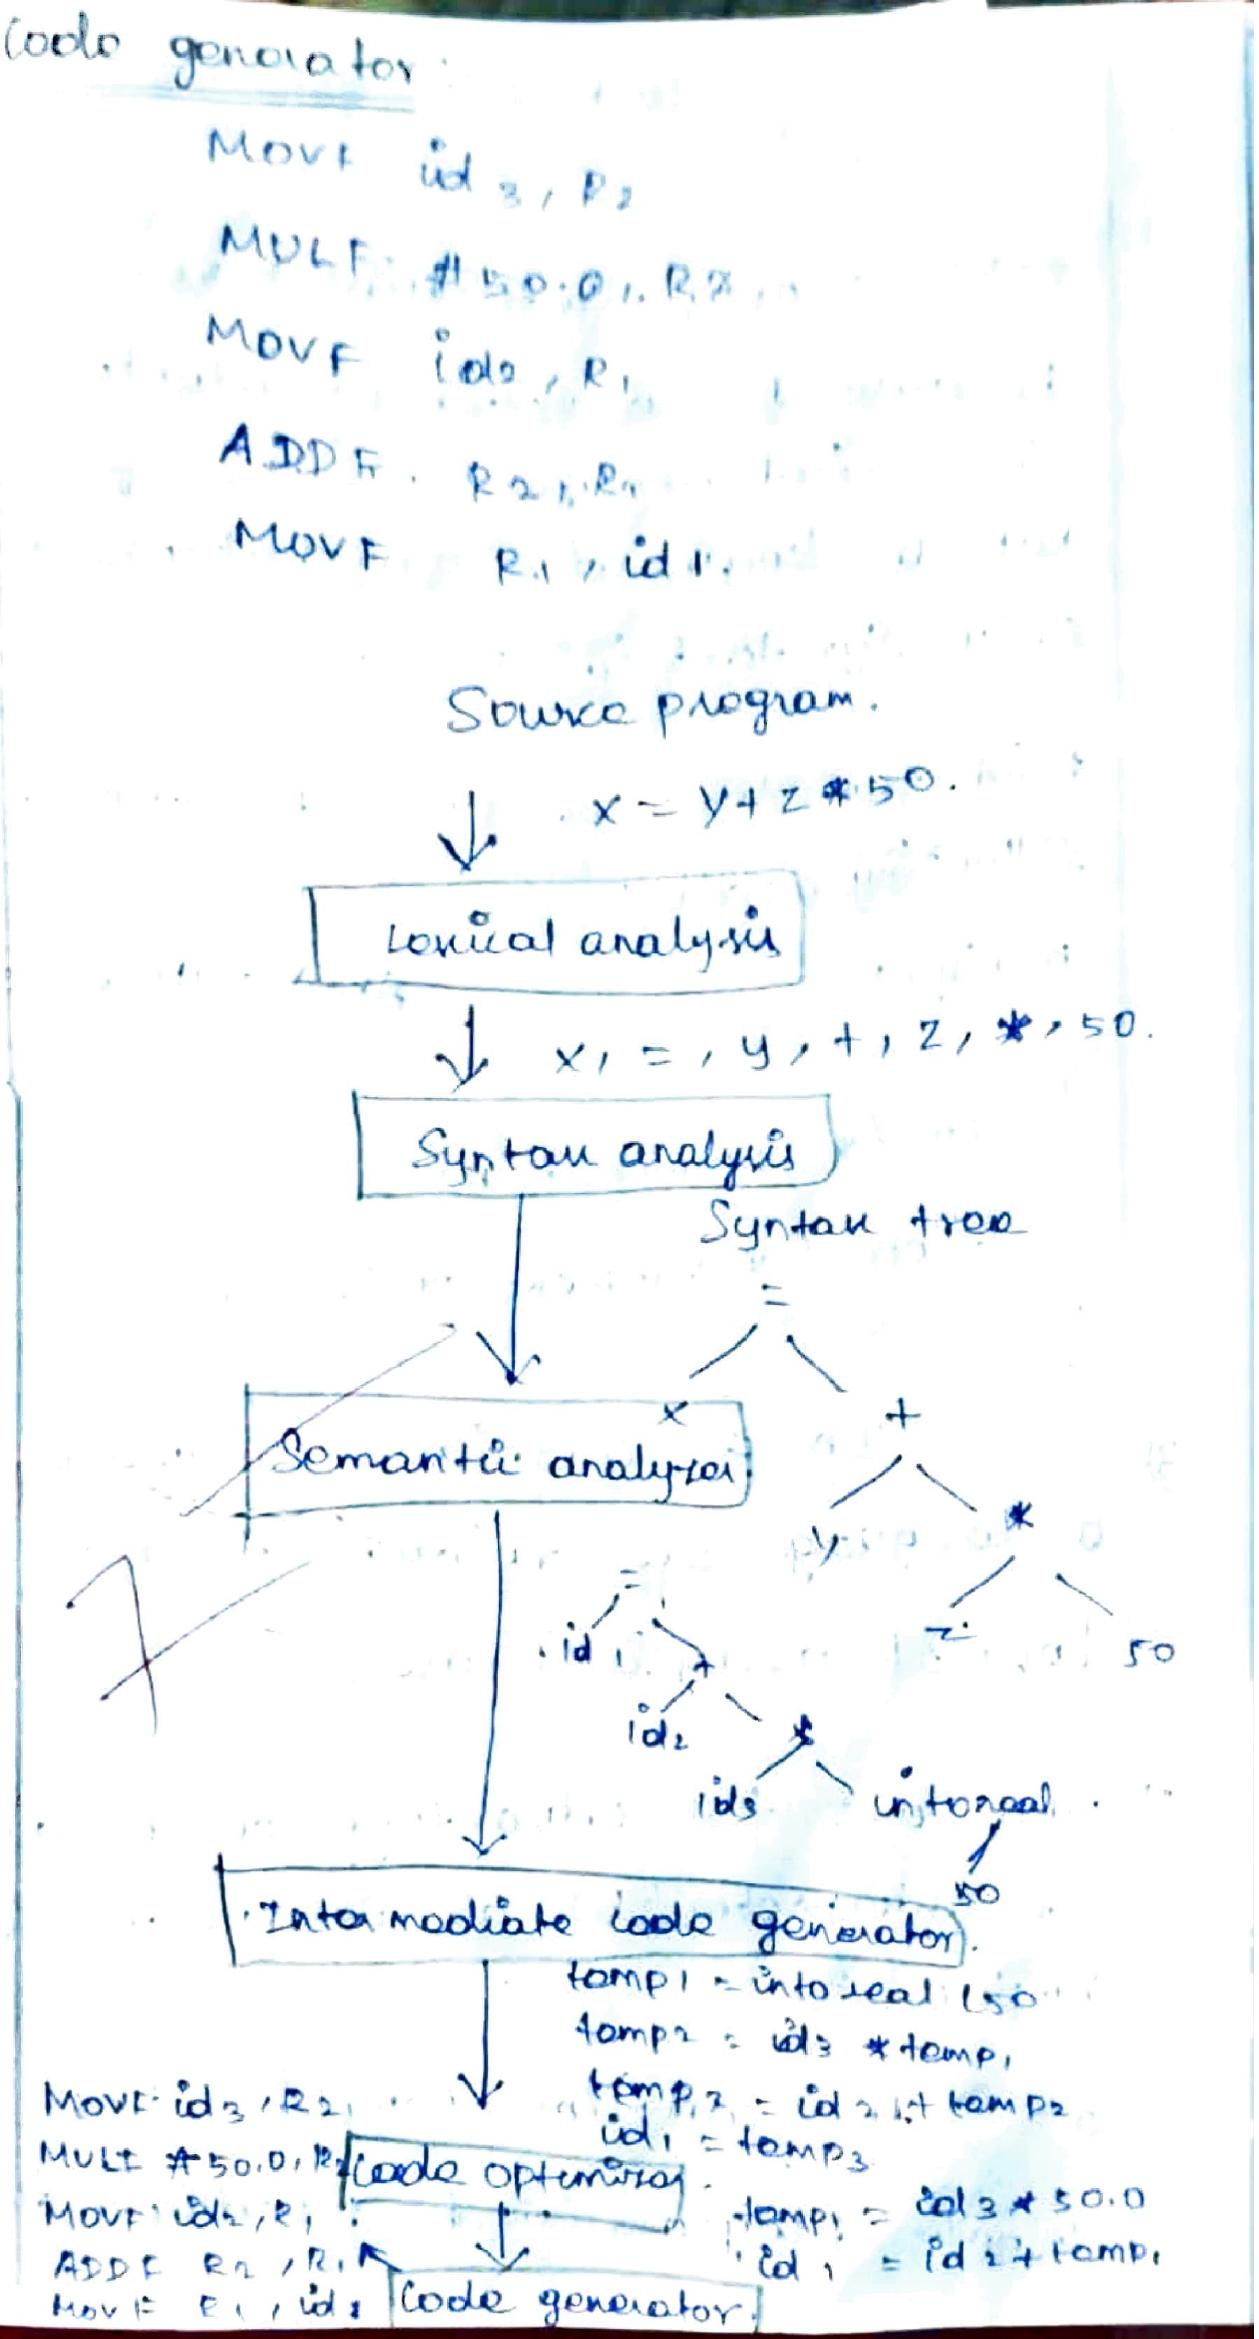 Code generator
MOVF id3, R2
MULF #50.0, R2
MOVF id2, R1
ADDF R2, R1
MOVF R1, id1.
Source program.
x = y + z * 50.
Lexical analysis
x, =, y, +, z, *, 50.
Syntax analysis
Syntax tree
=
x +
y *
z 50
Semantic analyzer
=
id1 +
id2 *
id3 intoreal
50
Intermediate code generator.
temp1 = intoreal (50
temp2 = id3 * temp1
temp3 = id2 + temp2
id1 = temp3
Code optimizer
temp1 = id3 * 50.0
id1 = id2 + temp1
Code generator
MOVF id3, R2
MULF #50.0, R2
MOVF id2, R1
ADDF R2, R1
MOVF R1, id1